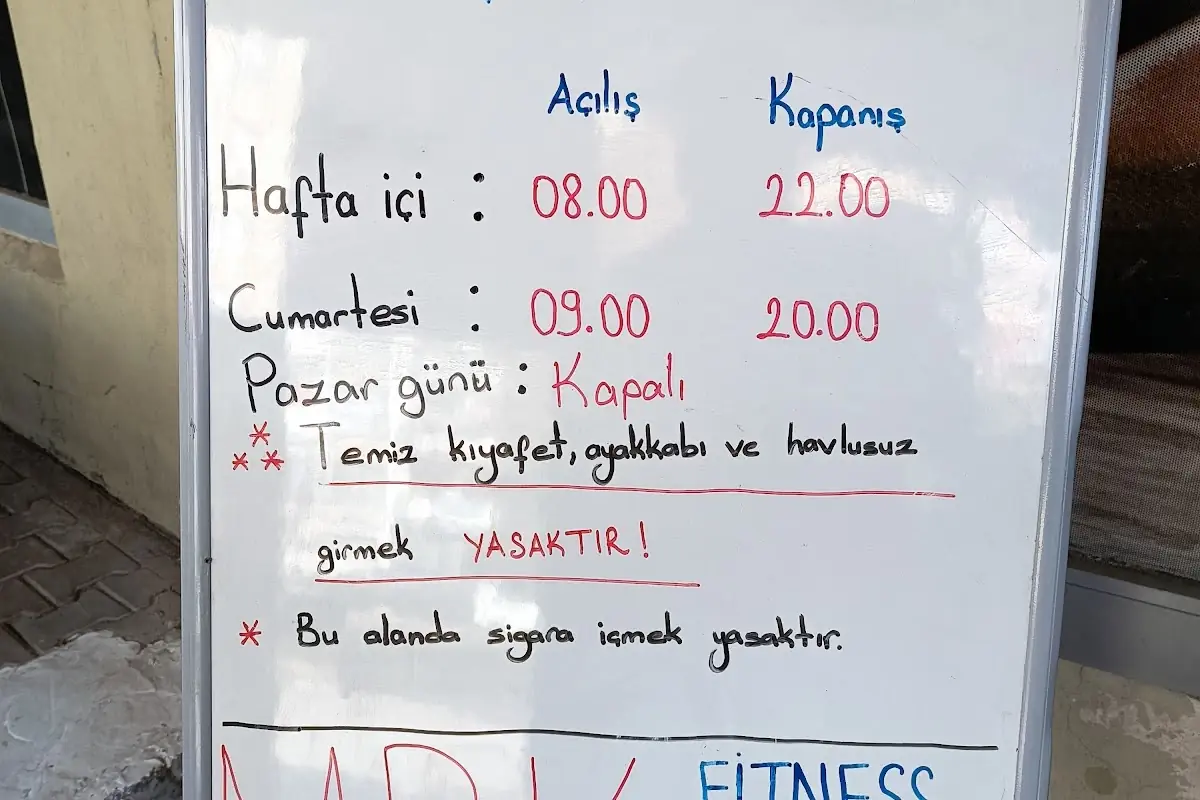 Açılış Kapanış
Hafta içi : 08.00 22.00
Cumartesi : 09.00 20.00
Pazar günü : Kapalı
*** Temiz kıyafet, ayakkabı ve havlusuz
girmek YASAKTIR!
* Bu alanda sigara içmek yasaktır.
FİTNESS